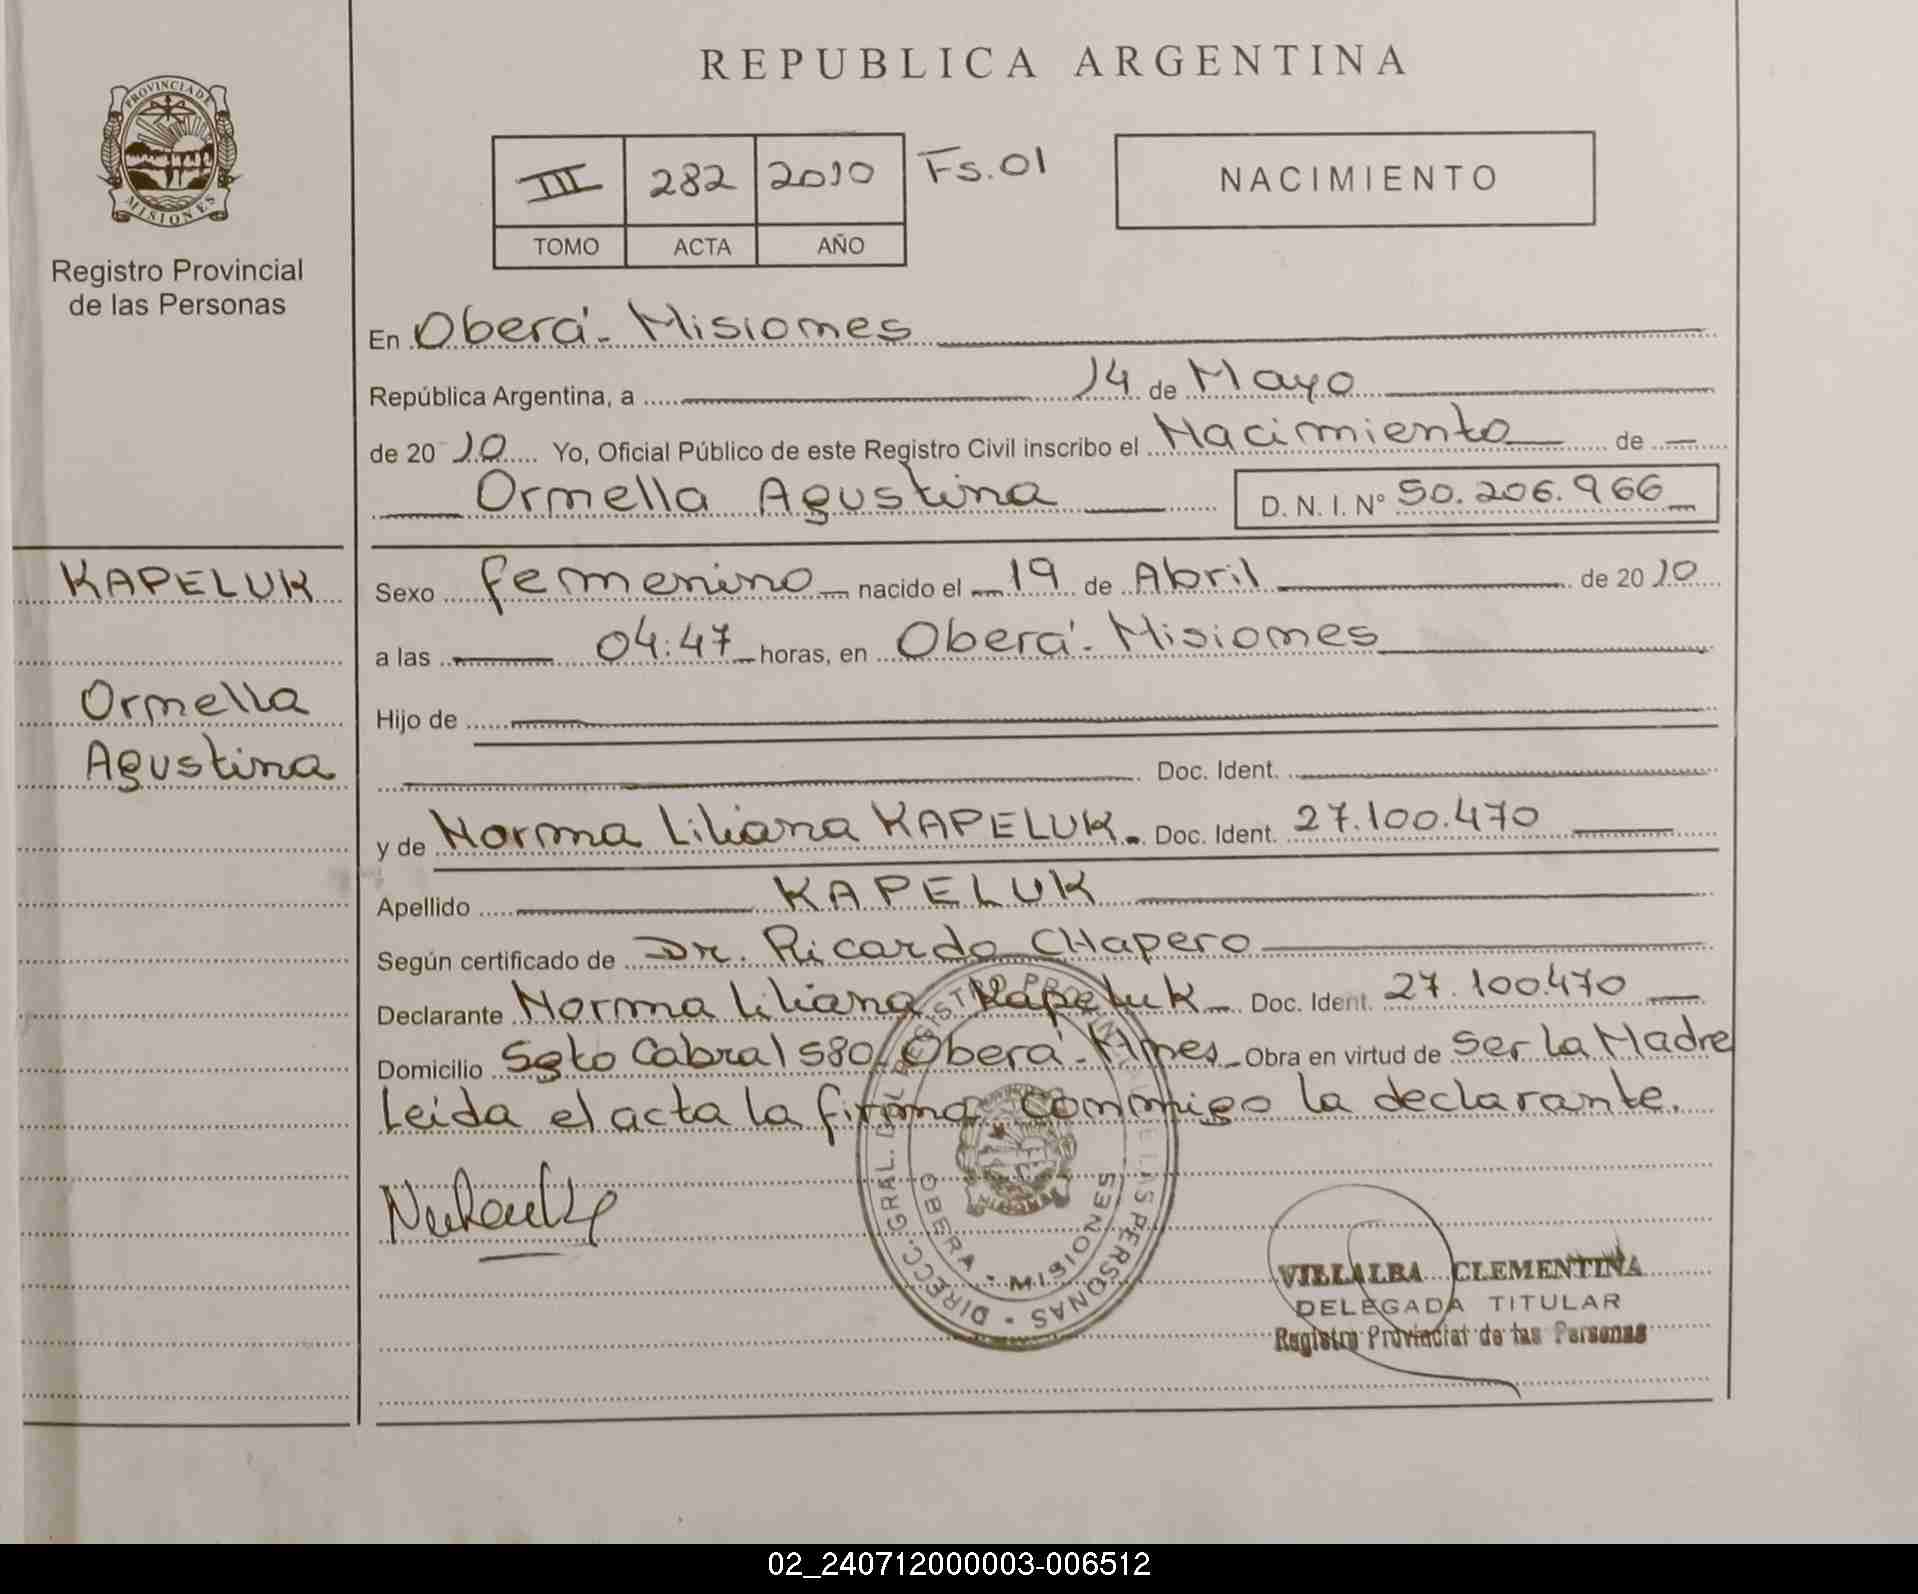 REPUBLICA ARGENTINA
PROVINCIA DE
MISIONES
Registro Provincial
de las Personas
III 282 2010 Fs.01
TOMO ACTA AÑO
NACIMIENTO
En Oberá - Misiones
República Argentina, a 14 de Mayo
de 20 10 Yo, Oficial Público de este Registro Civil inscribo el Nacimiento de
Ornella Agustina D. N. I. N° 50.206.966
KAPELUK
Ornella
Agustina
Sexo femenino nacido el 19 de Abril de 20 10
a las 04:47 horas, en Oberá - Misiones
Hijo de
Doc. Ident.
y de Norma Liliana KAPELUK. Doc. Ident. 27.100.470
Apellido KAPELUK
Según certificado de Dr. Ricardo CHapero
Declarante Norma Liliana Kapeluk Doc. Ident. 27.100.470
Domicilio Sgto Cabral 580 Oberá - Mnes Obra en virtud de ser la Madre
Leida el acta la firma conmigo la declarante.
DIRECC. GRAL. DEL REGISTRO PROVINCIAL DE LAS PERSONAS
OBERA - MISIONES
VILLALBA CLEMENTINA
DELEGADA TITULAR
Registro Provincial de las Personas
02_240712000003-006512